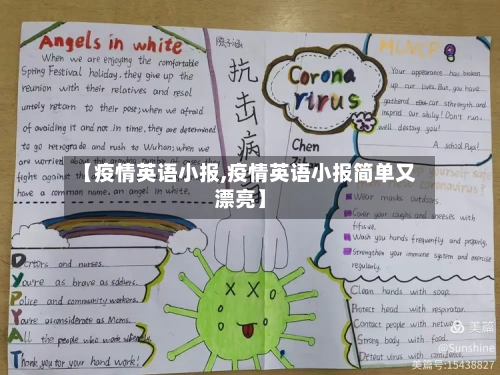 Angels in white
When we are enjoying the comfortable
Spring Festival holiday, they give up the
reunion with their relatives and resol
untely return to their post; when we afraid
of avoiding it and not in time, they are determined
to go retrograde and rush to Wuhan; when we
are worried about the growing number of
fight against th
have a common name, an angel in white.
Doctors and nurses.
You're as brave as soldiers.
Police and community workers.
You're as considerate as Moms.
All the people who work
Thank you for your hand work!
陈子涵
抗击病
Corona
rirus
Chen
【疫情英语小报,疫情英语小报简单又
漂亮】
Your appearance has broken
up our lives. But, you have
gathered our strength and
inspired our ability! Don't run,
we'll destroy you!
A school Pupil
yourself safe
new coronavirus?
Wear masks outdoors.
Cover your coughs and sneezes with
tifusue.
Wash you hands frequently and properly.
Strengthen your immune system and exercise
regularly.
Clean hands with soap.
Protect head with respirator.
Contact people with netwo
Strong body with food.
Detect virus with confidence.
美篇
@Sunshine
美篇号:15438827